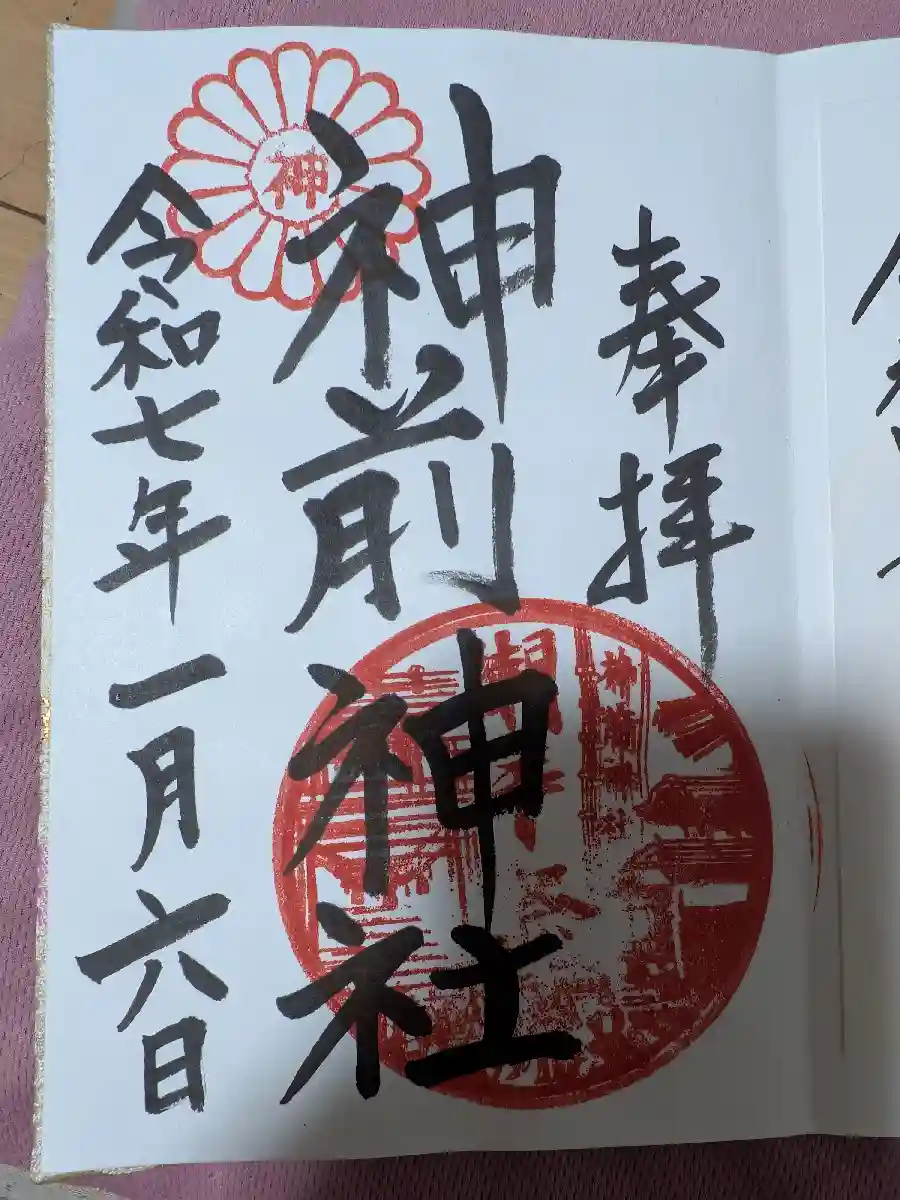 奉拝
神前神社
令和七年一月六日
神
神前神社